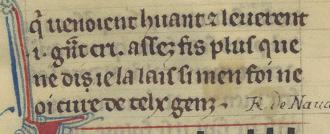 q̃ uenoient huant ⁊ leuerent
.i. gñt cri. assez fis plus que
ne dis ie la laissi men foi ne
oi cure de telx genz.
R. de Nau